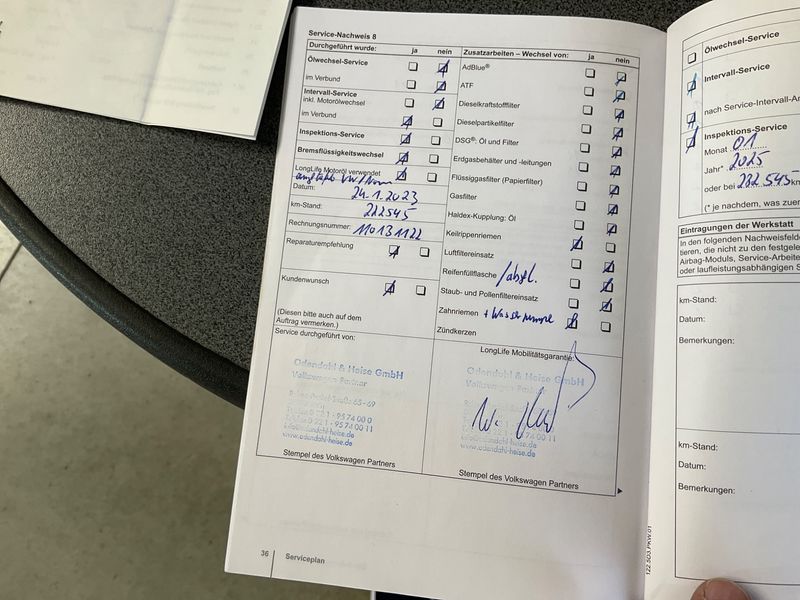 Service-Nachweis 8
Durchgeführt wurde: ja nein
Ölwechsel-Service
im Verbund
Intervall-Service
inkl. Motorölwechsel
im Verbund
Inspektions-Service
Bremsflüssigkeitswechsel
LongLife Motoröl verwendet
VW/Norm
Datum: 24.1.2023
km-Stand: 222545
Rechnungsnummer: 110131122
Reparaturempfehlung
Kundenwunsch
(Diesen bitte auch auf dem
Auftrag vermerken.)
Service durchgeführt von:
Odendahl & Heise GmbH
Volkswagen Partner
65-69
Telefon 0 22 1 - 95 74 00 0
Telefax 0 22 1 - 95 74 00 11
info@odendahl-heise.de
www.odendahl-heise.de
Stempel des Volkswagen Partners
Zusatzarbeiten – Wechsel von: ja nein
AdBlue®
ATF
Dieselkraftstofffilter
Dieselpartikelfilter
DSG®: Öl und Filter
Erdgasbehälter und -leitungen
Flüssiggasfilter (Papierfilter)
Gasfilter
Haldex-Kupplung: Öl
Keilrippenriemen
Luftfiltereinsatz
Reifenfüllflasche /abgel.
Staub- und Pollenfiltereinsatz
Zahnriemen + Wasserpumpe
Zündkerzen
LongLife Mobilitätsgarantie:
Odendahl & Heise GmbH
Volkswagen Partner
95 74 00 11
info@odendahl-heise.de
www.odendahl-heise.de
Stempel des Volkswagen Partners
36 Serviceplan
Ölwechsel-Service
Intervall-Service
nach Service-Intervall-An
Inspektions-Service
Monat 01
Jahr* 2025
oder bei 222545 km
(* je nachdem, was zuer
Eintragungen der Werkstatt
In den folgenden Nachweisfelde
tieren, die nicht zu den festgele
Airbag-Moduls, Service-Arbeite
oder laufleistungsabhängigen S
km-Stand:
Datum:
Bemerkungen:
km-Stand:
Datum:
Bemerkungen:
122.5D3.PKW.01